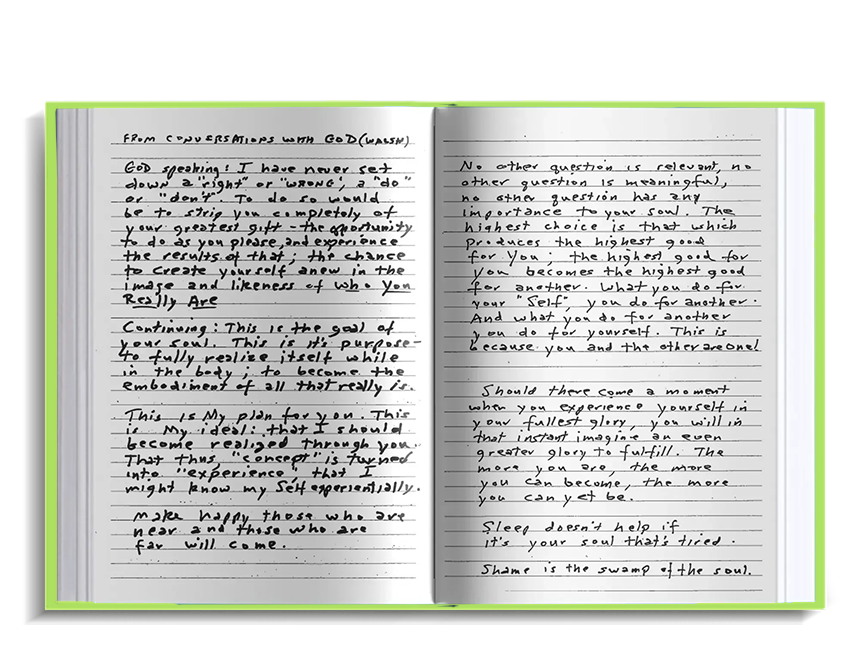 FROM CONVERSATIONS WITH GOD (WALSH)
GOD speaking: I have never set
down a "right" or "WRONG", a "do"
or "don't". To do so would
be to strip you completely of
your greatest gift - the opportunity
to do as you please, and experience
the results of that; the chance
to create yourself anew in the
image and likeness of who You
Really Are
Continuing: This is the goal of
your soul. This is it's purpose -
to fully realize itself while
in the body; to become the
embodiment of all that really is.
This is My plan for you. This
is My ideal: that I should
become realized through you.
That thus, "concept" is turned
into "experience" that I
might know my Self experientially.
Make happy those who are
near and those who are
far will come.
No other question is relevant, no
other question is meaningful,
no other question has any
importance to your soul. The
highest choice is that which
produces the highest good
for You; the highest good for
you becomes the highest good
for another. What you do for
your "Self", you do for another.
And what you do for another
you do for yourself. This is
because you and the other are one!
Should there come a moment
when you experience yourself in
your fullest glory, you will in
that instant imagine an even
greater glory to fulfill. The
more you are, the more
you can become, the more
you can yet be.
Sleep doesn't help if
it's your soul that's tired.
Shame is the swamp of the soul.